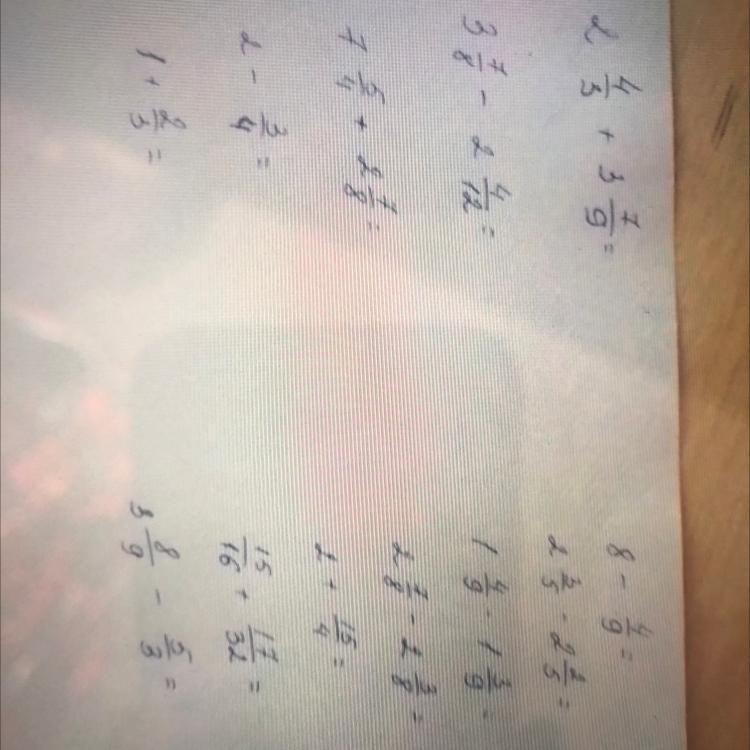 2 4/3 + 3 7/9 =
3 7/8 - 2 4/12 =
7 5/4 + 2 7/8 =
2 - 3/4 =
1 + 2/3 =
8 - 4/9 =
2 3/5 - 2 2/5 =
1 4/9 - 1 3/9 =
2 7/8 - 2 3/8 =
2 + 15/4 =
15/16 + 17/32 =
3 8/9 - 5/3 =